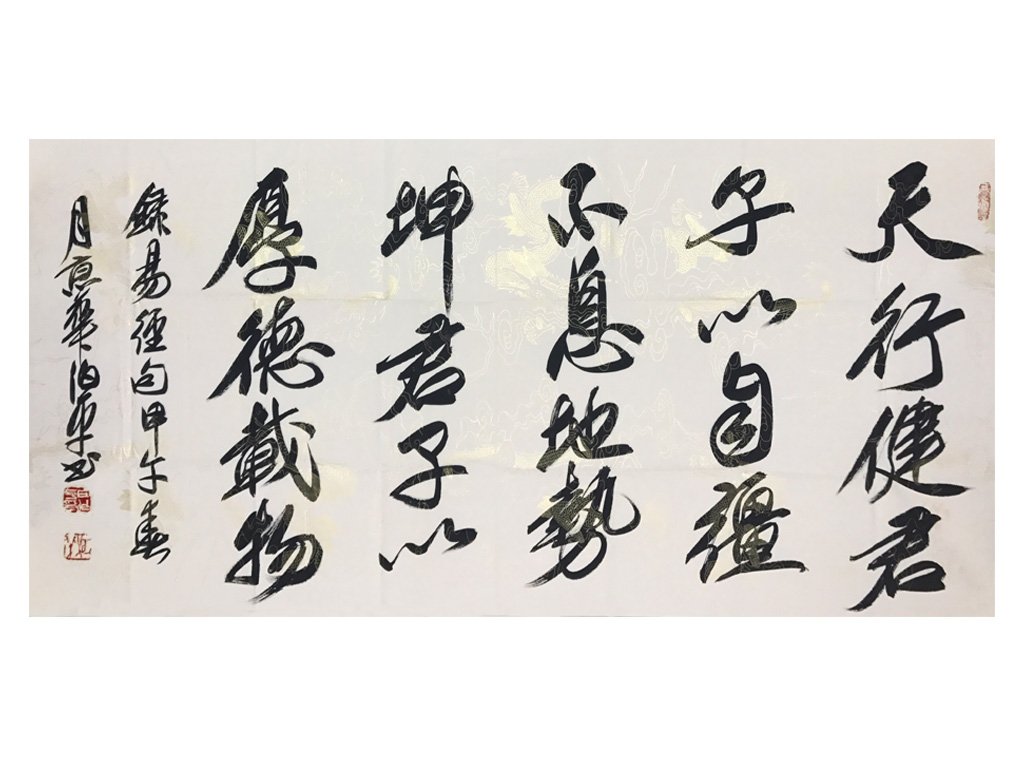 天行健君
子以自彊
不息地勢
坤君子以
厚德載物
錄易經句甲午春
月京華泊平书